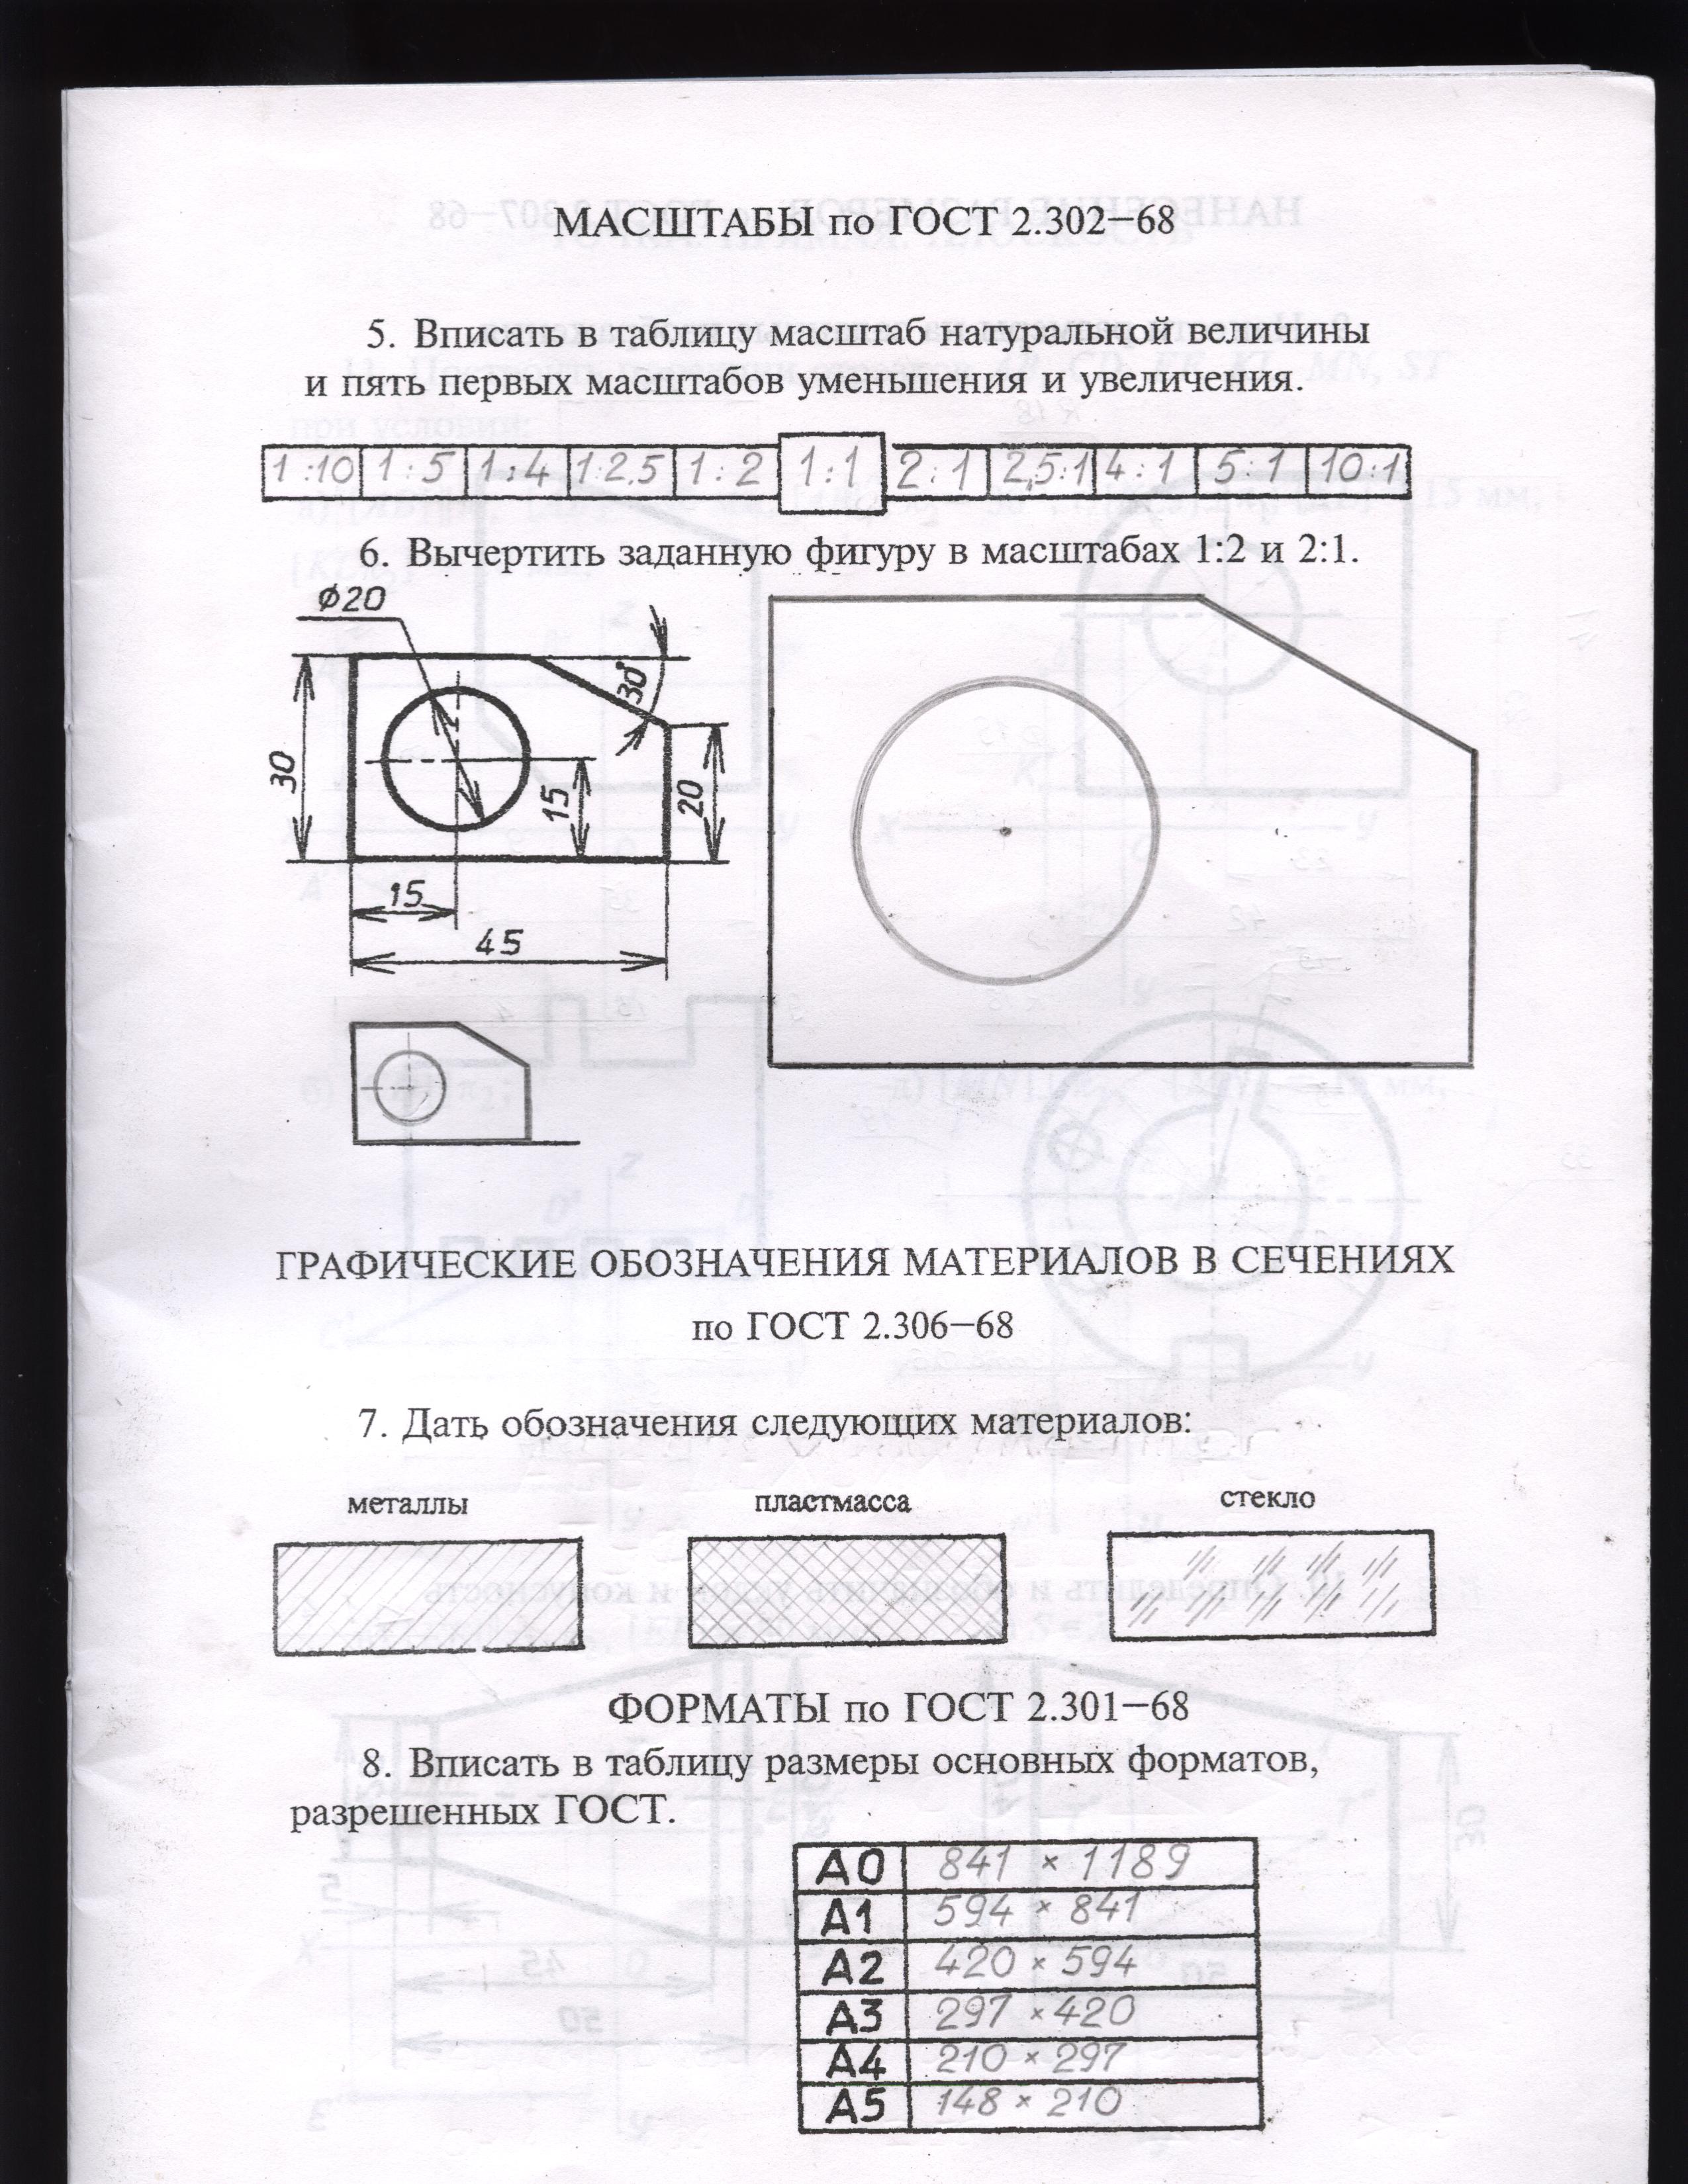 МАСШТАБЫ по ГОСТ 2.302—68
5. Вписать в таблицу масштаб натуральной величины
и пять первых масштабов уменьшения и увеличения.
1:10 1:5 1:4 1:2,5 1:2 1:1 2:1 2,5:1 4:1 5:1 10:1
6. Вычертить заданную фигуру в масштабах 1:2 и 2:1.
⌀20
30°
30
15
20
15
45
ГРАФИЧЕСКИЕ ОБОЗНАЧЕНИЯ МАТЕРИАЛОВ В СЕЧЕНИЯХ
по ГОСТ 2.306—68
7. Дать обозначения следующих материалов:
металлы пластмасса стекло
ФОРМАТЫ по ГОСТ 2.301—68
8. Вписать в таблицу размеры основных форматов,
разрешенных ГОСТ.
А0 841 × 1189
А1 594 × 841
А2 420 × 594
А3 297 × 420
А4 210 × 297
А5 148 × 210